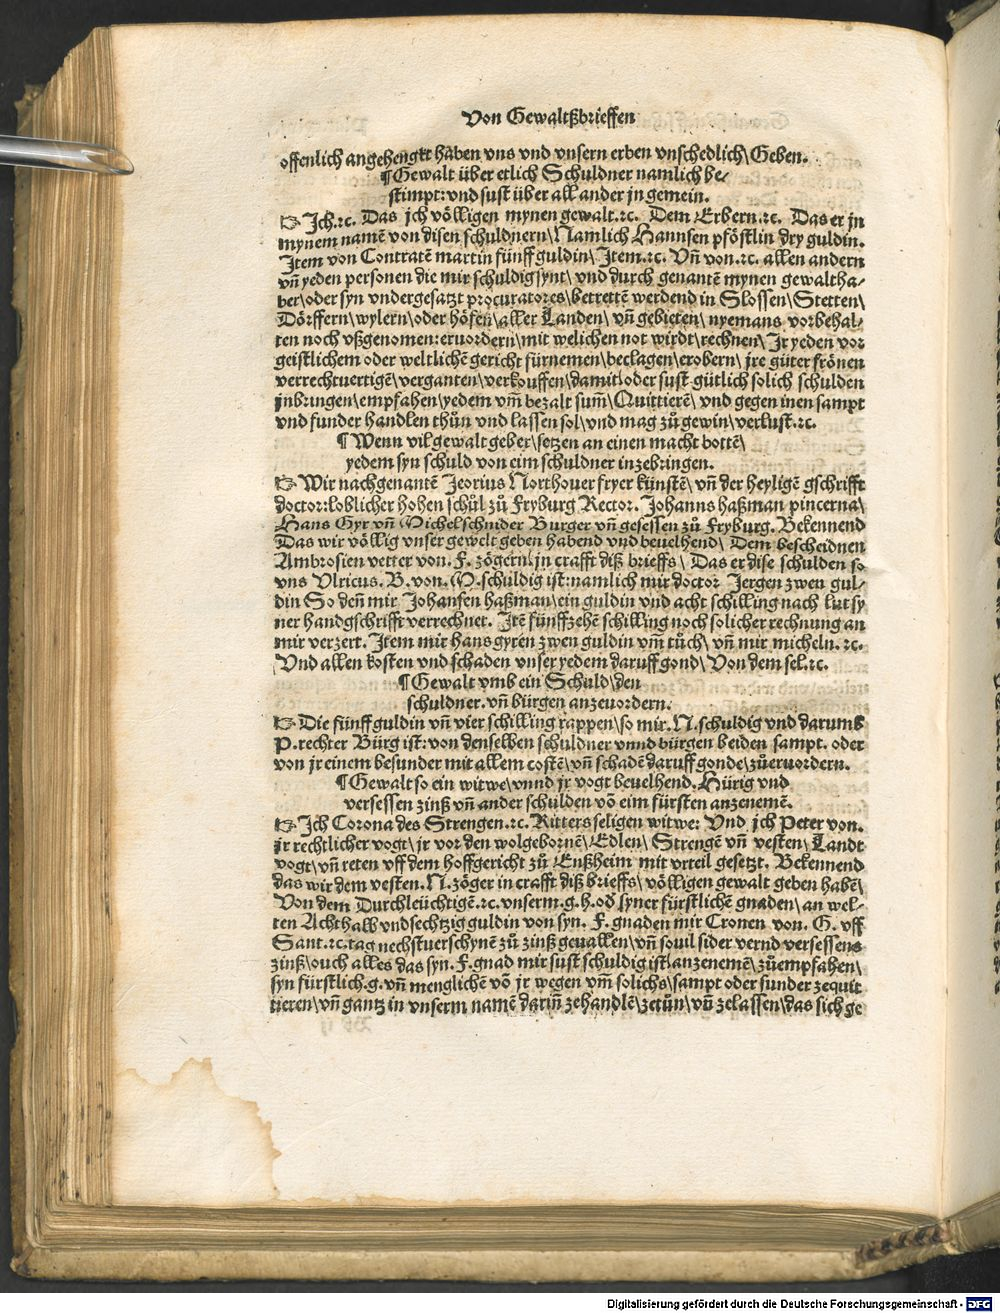 Von Gewaltßbrieffen
offenlich angehengkt haben vns vnd vnsern erben vnschedlich\ Geben.
¶ Gewalt über etlich Schuldner namlich be⸗
stimpt: vnd sust über all ander jn gemein.
☞ Ich.⁊c. Das jch völligen mynen gewalt.⁊c. Dem Erbern.⁊c. Das er jn
mynem namẽ von disen schuldnern\ Namlich Hannsen pföstlin dry guldin.
Item von Contratẽ martin fünff guldin\ Item.⁊c. Vñ von.⁊c. allen andern
vñ yeden personen die mir schuldig synt\ vnd durch genantẽ mynen gewaltha⸗
ber\ oder syn vndergesatzt procuratores\ betrettẽ werdend in Slossen\ Stetten\
Dörffern\ wylern\ oder höfen\ aller Landen\ vñ gebieten\ nyemans vorbehal⸗
ten noch vßgenomen: eruordern\ mit welichen not wirdt\ rechnen\ Ir yeden vor
geistlichem oder weltlichẽ gericht fürnemen\ beclagen\ erobern\ jre güter frönen
verrechtuertigẽ\ verganten\ verkouffen\ damit\ oder sust gütlich solich schulden
jnbringen\ empfahen\ yedem vm̃ bezalt sum̃\ Quittierẽ\ vnd gegen inen sampt
vnd sunder handlen thůn vnd lassen sol\ vnd mag zů gewin\ verlust.⁊c.
¶ Wenn vil gewalt geber\ setzen an einen macht bottẽ\
yedem syn schuld von eim schuldner inzebringen.
☞ Wir nachgenantẽ Jeorius Northouer fryer künstẽ\ vñ der heyligẽ gschrifft
doctor: loblicher hohen schůl zů Fryburg Rector. Johanns haßman pincerna\
Hans Gyr vñ Michel schnider Burger vñ gesessen zů Fryburg. Bekennend
Das wir völlig vnser gewelt geben habend vnd beuelhend\ Dem bescheidnen
Ambrosien vetter von. F. zögern\ jn crafft diß brieffs\ Das er dise schulden so
vns Vlricus. B. von. M. schuldig ist: namlich mir doctor Jergen zwen gul⸗
din So deñ mir Johansen haßman\ ein guldin vnd acht schilling nach lut sy
ner handgschrifft verrechnet. Itẽ fünffzehẽ schilling noch solicher rechnung an
mir verzert. Item mir hans gyren zwen guldin vm̃ tůch\ vñ mir micheln.⁊c.
Vnd allen kosten vnd schaden vnser yedem daruff gond\ Von dem sel.⁊c.
¶ Gewalt vmb ein Schuld\ den
schuldner. vñ bürgen anzeuordern.
☞ Die fünff guldin vñ vier schilling rappen\ so mir. N. schuldig vnd darumb
P. rechter Bürg ist: von denselben schuldner vnnd bürgen beiden sampt. oder
von jr einem besunder mit allem costẽ\ vñ schadẽ daruff gonde\ zů eruordern.
¶ Gewalt so ein witwe\ vnnd jr vogt beuelhend. Hürig vnd
versessen zinß vñ ander schulden võ eim fürsten anzenemẽ.
☞ Ich Corona des Strengen.⁊c. Ritters seligen witwe: Vnd jch Peter von.
jr rechtlicher vogt\ jr vor den wolgebornẽ\ Edlen\ Strengẽ vñ vesten\ Landt
vogt\ vñ reten vff dem hoffgericht zů Enßheim mit vrteil gesetzt. Bekennend
das wir dem vesten. N. zöger in crafft diß brieffs\ völligen gewalt geben habẽ\
Von dem Durchleüchtigẽ.⁊c. vnserm. g. h. od̃ syner fürstlichẽ gnaden\ an wel⸗
ten Achthalb vnd sechtzig guldin von syn. F. gnaden mit Cronen von. G. vff
Sant.⁊c. tag nechstuerschynẽ zů zinß geuallen\ vñ souil sider vernd versessens
zinß\ ouch alles das syn. F. gnad mir sust schuldig ist\ anzenemẽ\ zů empfahen\
syn fürstlich. g. vñ menglichen võ jr wegen vm̃ solichs\ sampt oder sunder zequit
tieren\ vñ gantz in vnserm namẽ darin̄ zehandlẽ\ zetůn\ vñ zelassen\ das sich ge
Digitalisierung gefördert durch die Deutsche Forschungsgemeinschaft - DFG